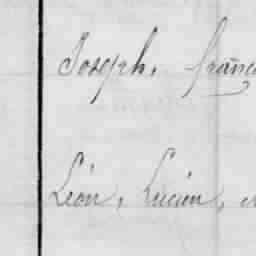 Joseph, franç
Léon, Lucien,